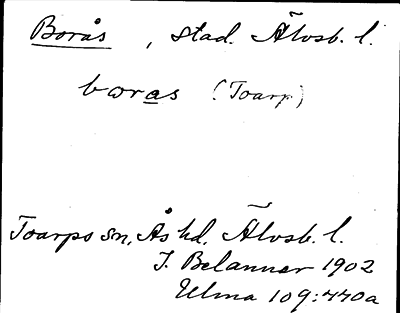 Borås, stad. Älvsb. l.
boras (Toarp)
Toarps sn, Ås hd. Älvsb. l.
J. Belanner 1902
Ulma 109:440a